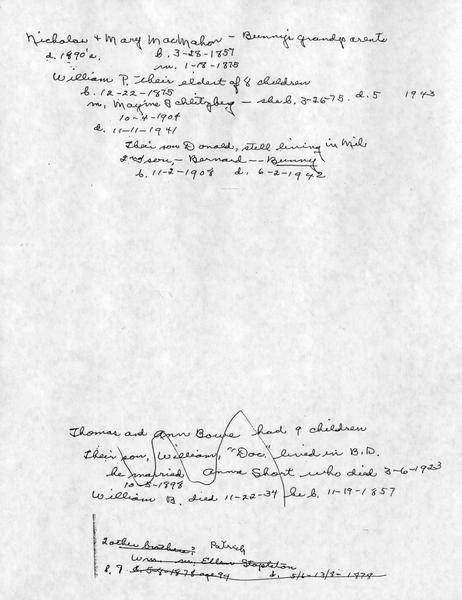 Nicholas + Mary MacMahon - Bunny's grandparents
d. 1890's. b. 3-28-1857
m. 1-18-1875
William P. their eldest of 8 children
b. 12-22-1875
m. Mayme Schlitzberg - she b. 3-26-75. d. 5 1943
10-4-1904
d. 11-11-1941
Their son Donald, still living in Mil
2nd son, - Bernard -- Bunny
b. 11-2-1908 d. 6-2-1942
Thomas and Ann Bowe had 9 children
Their son, William, "Doc," lived in B.D.
he married Anna Short who died 3-6-1923
10-5-1898
William B. died 11-22-34 he b. 11-19-1857
2 other brothers? Patrick
Wm m. Ellen Stapleton
b. 5-8-1878 age 94 d.